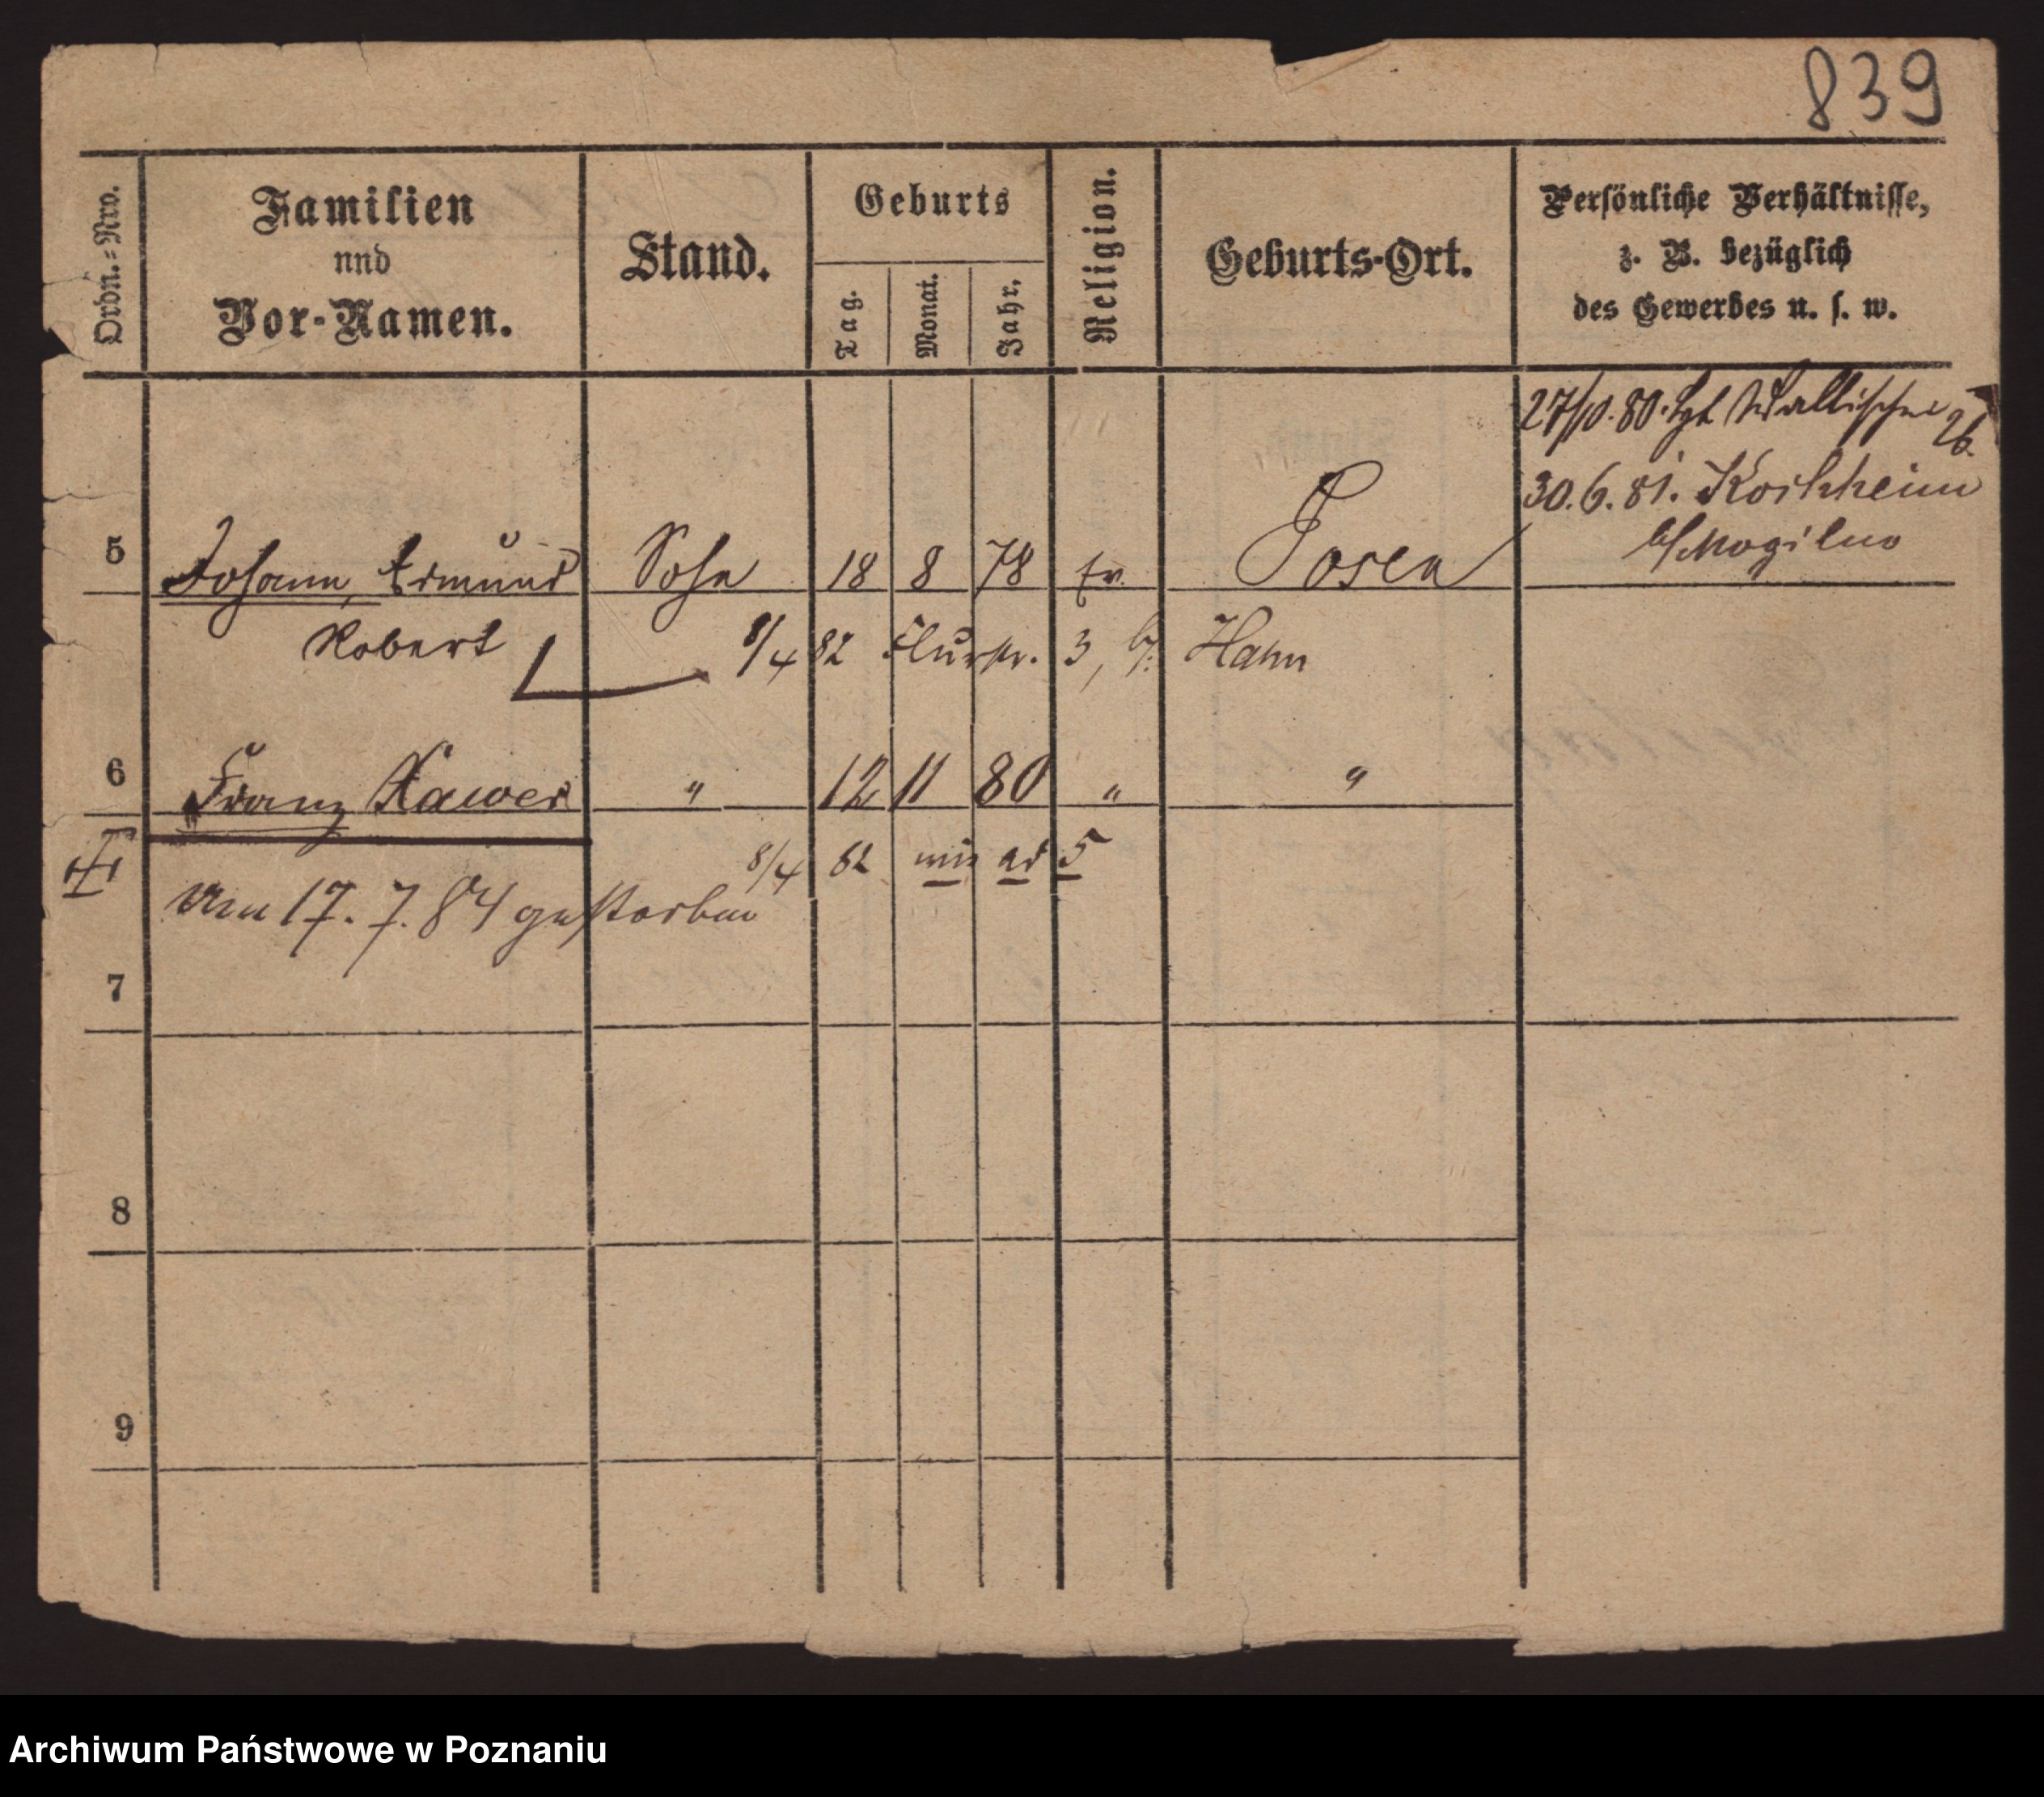 839
Ordn.=Nro.
Familien
und
Vor-Namen.
Stand.
Geburts
Tag.
Monat.
Jahr.
Religion.
Geburts-Ort.
Persönliche Verhältnisse,
z. B. bezüglich
des Gewerbes u. s. w.
27/10. 80. Wallischei 26.
30. 6. 81. Kaisheim
b/Mogilno
5 Johann, Edmund Sohn 18 8 78 Ev. Posen
Robert 8/4 82 3, b/ Hahn
6 Franz Xawer " 12 11 80 " "
8/4 82 wie ad 5
Am 17. 7. 84 gestorben
7
8
9
Archiwum Państwowe w Poznaniu